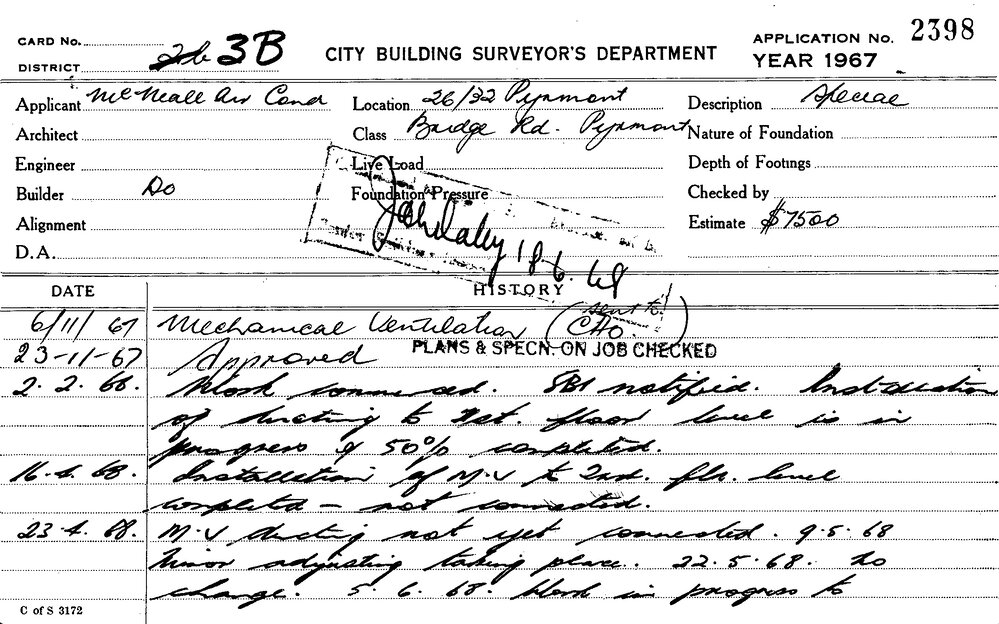 CARD No.
DISTRICT 3B
CITY BUILDING SURVEYOR'S DEPARTMENT
APPLICATION No. 2398
YEAR 1967
Applicant McNeall Air Cond
Location 26/32 Pyrmont
Description Special
Architect
Class Bridge Rd. Pyrmont
Nature of Foundation
Engineer
Live Load
Depth of Footings
Builder Do
Foundation Pressure
Checked by
Alignment
Estimate $7500
D.A.
18.6.68
DATE
HISTORY
6/11/67 Mechanical Ventilation (sent to CHO)
23-11-67 Approved PLANS & SPECN. ON JOB CHECKED
2.2.68. Work commenced. SBI notified. Installation
of ducting to 1st. floor level is in
progress & 50% completed.
16.4.68. Installation of M.V to 2nd. flr. level
completed - not connected.
23.4.68. M.V ducting not yet connected. 9.5.68
Minor adjusting taking place. 22.5.68. no
change. 5.6.68. Work in progress to
C of S 3172